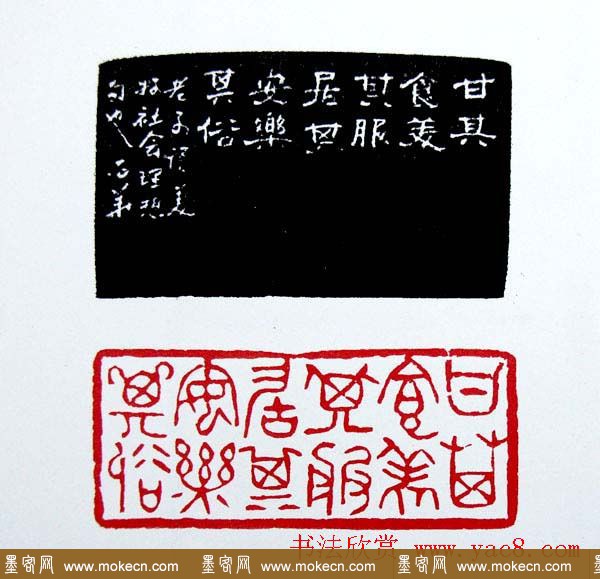 甘其
食美
其服
居其
安樂
其俗
老子美
好社会理想
句也
甘其
食美
其服
居其
安樂
其俗
书法欣赏 www.yac8.com
墨客网 www.mokecn.com 墨客网 www.mokecn.com 墨客网 www.mokecn.com